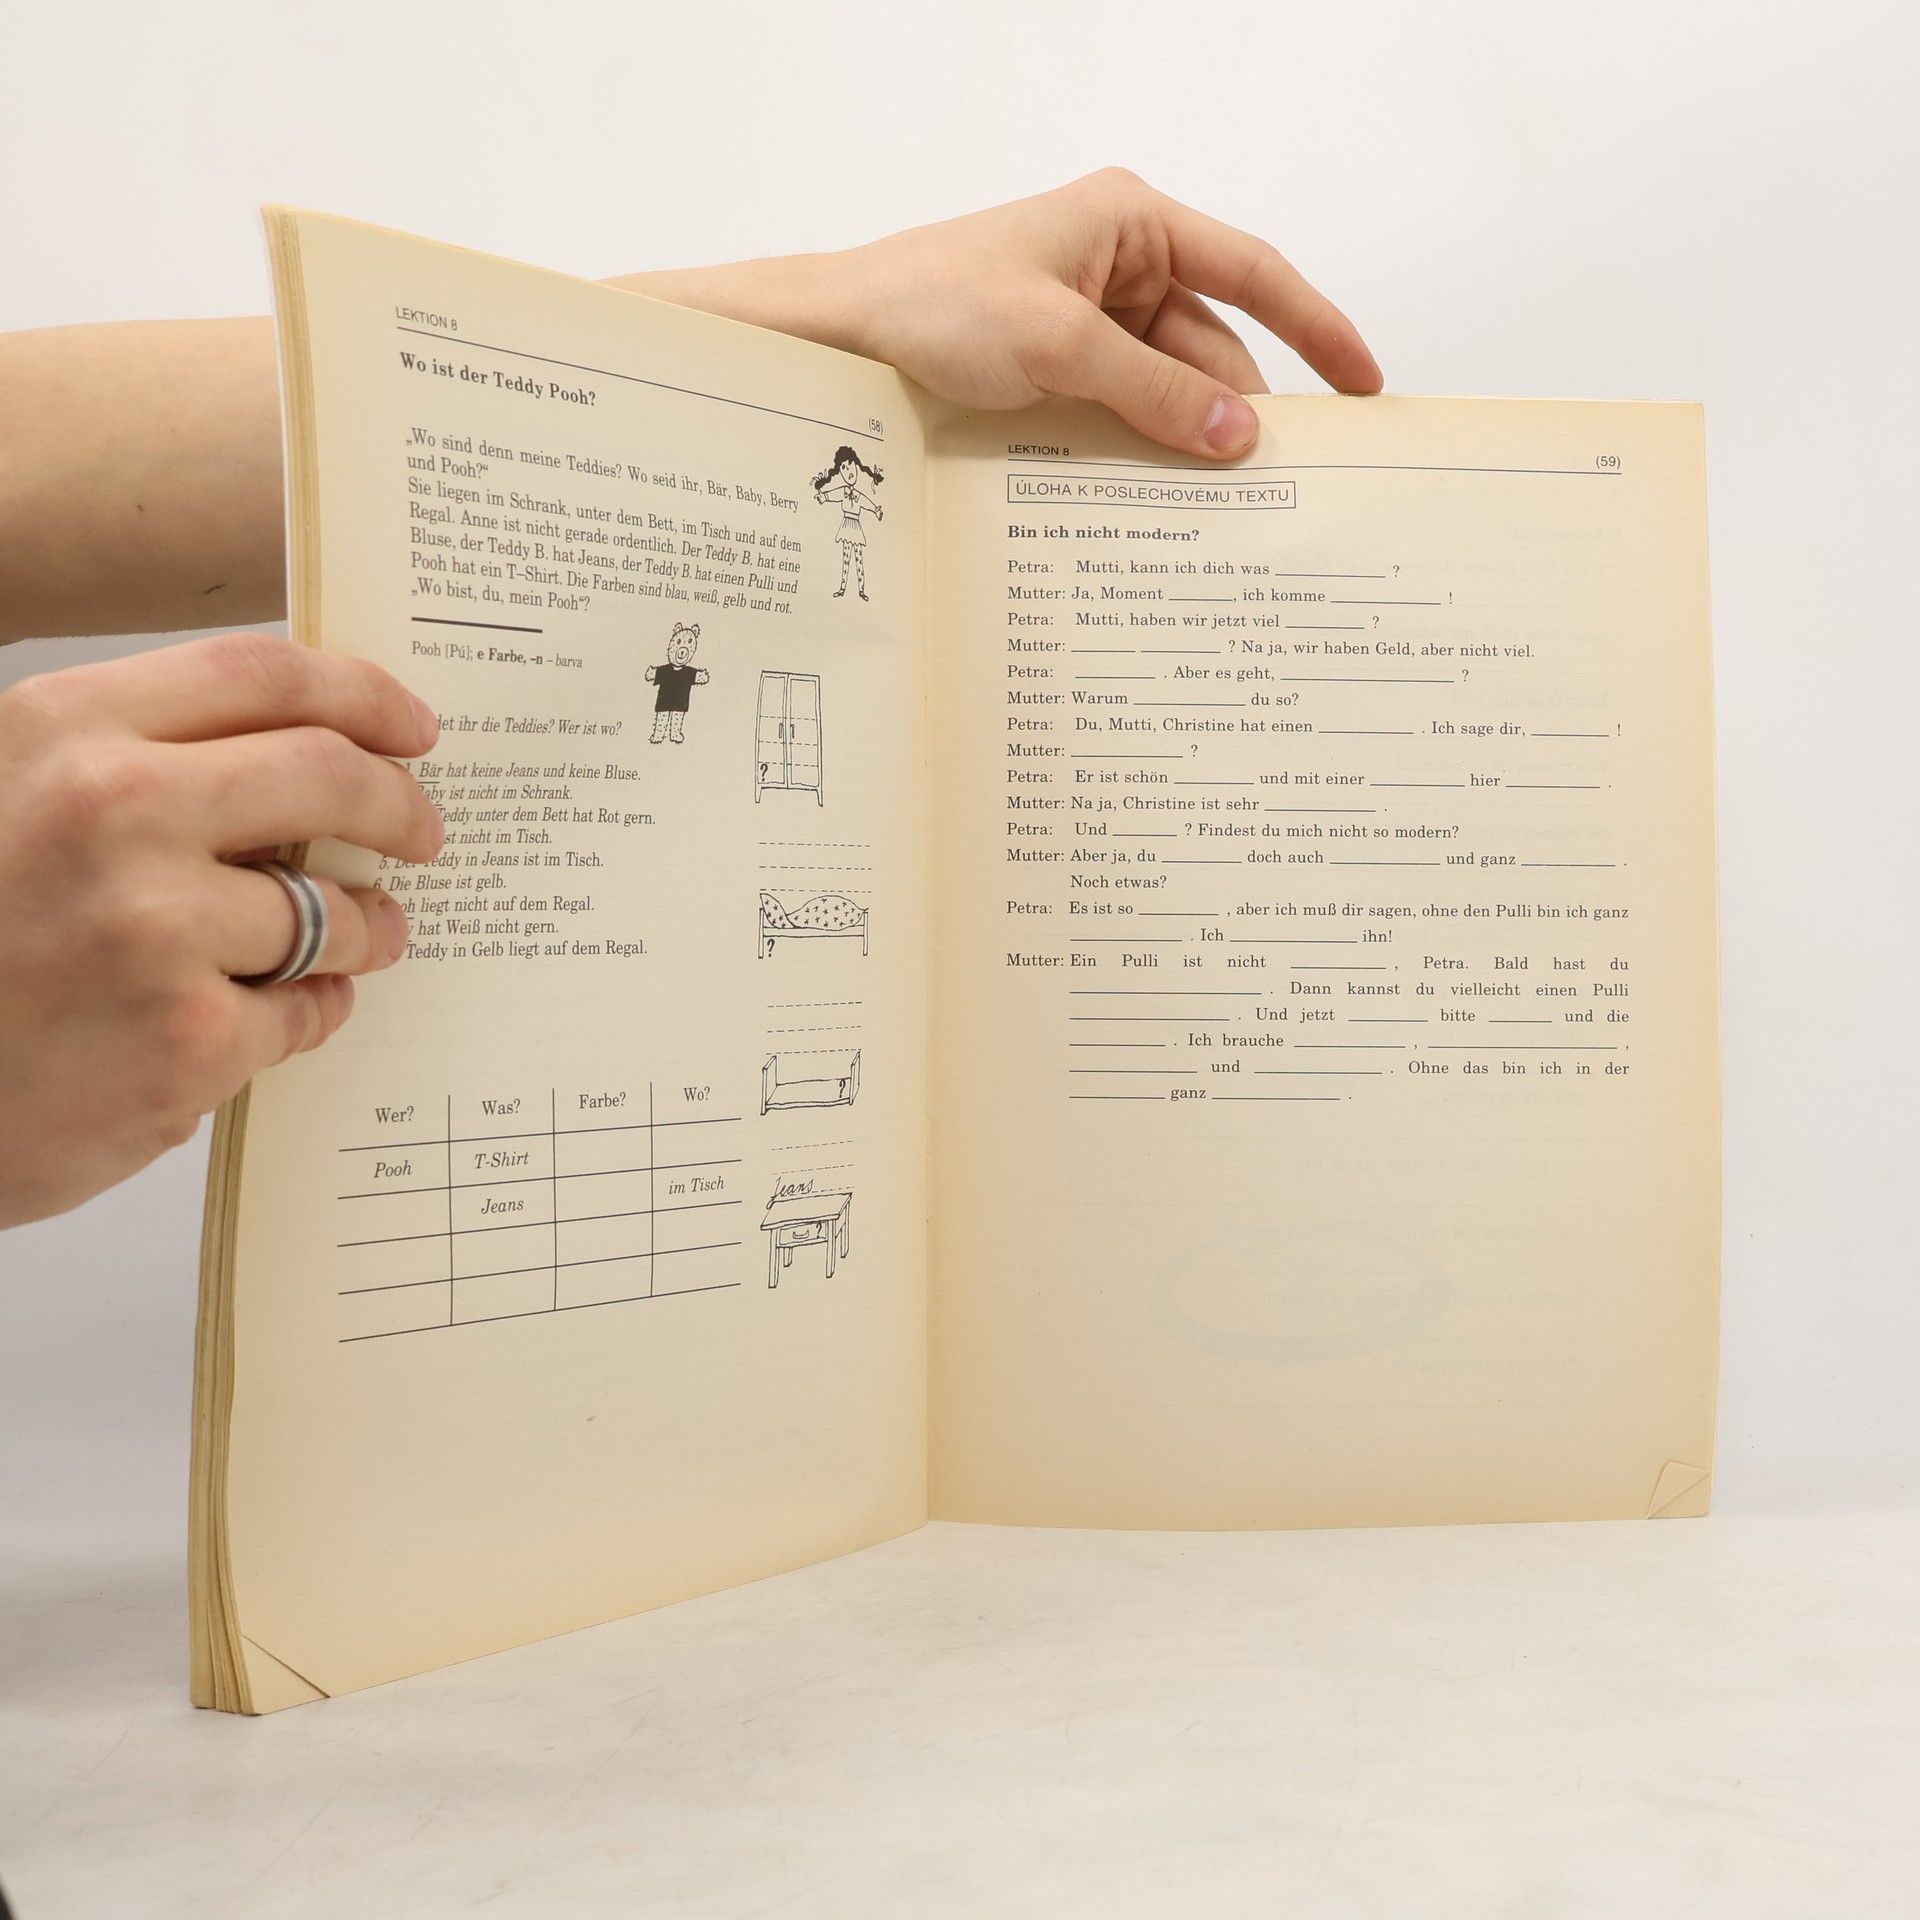 LEKTION 8
Wo ist der Teddy Pooh?
(58)
„Wo sind denn meine Teddies? Wo seid ihr, Bär, Baby, Berry
und Pooh?“
Sie liegen im Schrank, unter dem Bett, im Tisch und auf dem
Regal. Anne ist nicht gerade ordentlich. Der Teddy B. hat eine
Bluse, der Teddy B. hat Jeans, der Teddy B. hat einen Pulli und
Pooh hat ein T–Shirt. Die Farben sind blau, weiß, gelb und rot.
„Wo bist, du, mein Pooh“?
Pooh [Pú]; e Farbe, –n – barva
ihr die Teddies? Wer ist wo?
1. Bär hat keine Jeans und keine Bluse.
ist nicht im Schrank.
Teddy unter dem Bett hat Rot gern.
ist nicht im Tisch.
5. Der Teddy in Jeans ist im Tisch.
6. Die Bluse ist gelb.
liegt nicht auf dem Regal.
hat Weiß nicht gern.
Teddy in Gelb liegt auf dem Regal.
?
?
?
Jeans
?
Wer? Was? Farbe? Wo?
Pooh T-Shirt
Jeans im Tisch
LEKTION 8 (59)
ÚLOHA K POSLECHOVÉMU TEXTU
Bin ich nicht modern?
Petra: Mutti, kann ich dich was ________ ?
Mutter: Ja, Moment ________, ich komme ________ !
Petra: Mutti, haben wir jetzt viel ________ ?
Mutter: ________ ________ ? Na ja, wir haben Geld, aber nicht viel.
Petra: ________ . Aber es geht, ________ ?
Mutter: Warum ________ du so?
Petra: Du, Mutti, Christine hat einen ________ . Ich sage dir, ________ !
Mutter: ________ ?
Petra: Er ist schön ________ und mit einer ________ hier ________ .
Mutter: Na ja, Christine ist sehr ________ .
Petra: Und ________ ? Findest du mich nicht so modern?
Mutter: Aber ja, du ________ doch auch ________ und ganz ________ .
Noch etwas?
Petra: Es ist so ________ , aber ich muß dir sagen, ohne den Pulli bin ich ganz
________ . Ich ________ ihn!
Mutter: Ein Pulli ist nicht ________ , Petra. Bald hast du
________ . Dann kannst du vielleicht einen Pulli
________ . Und jetzt ________ bitte ________ und die
________ . Ich brauche ________ , ________ ,
________ und ________ . Ohne das bin ich in der
________ ganz ________ .